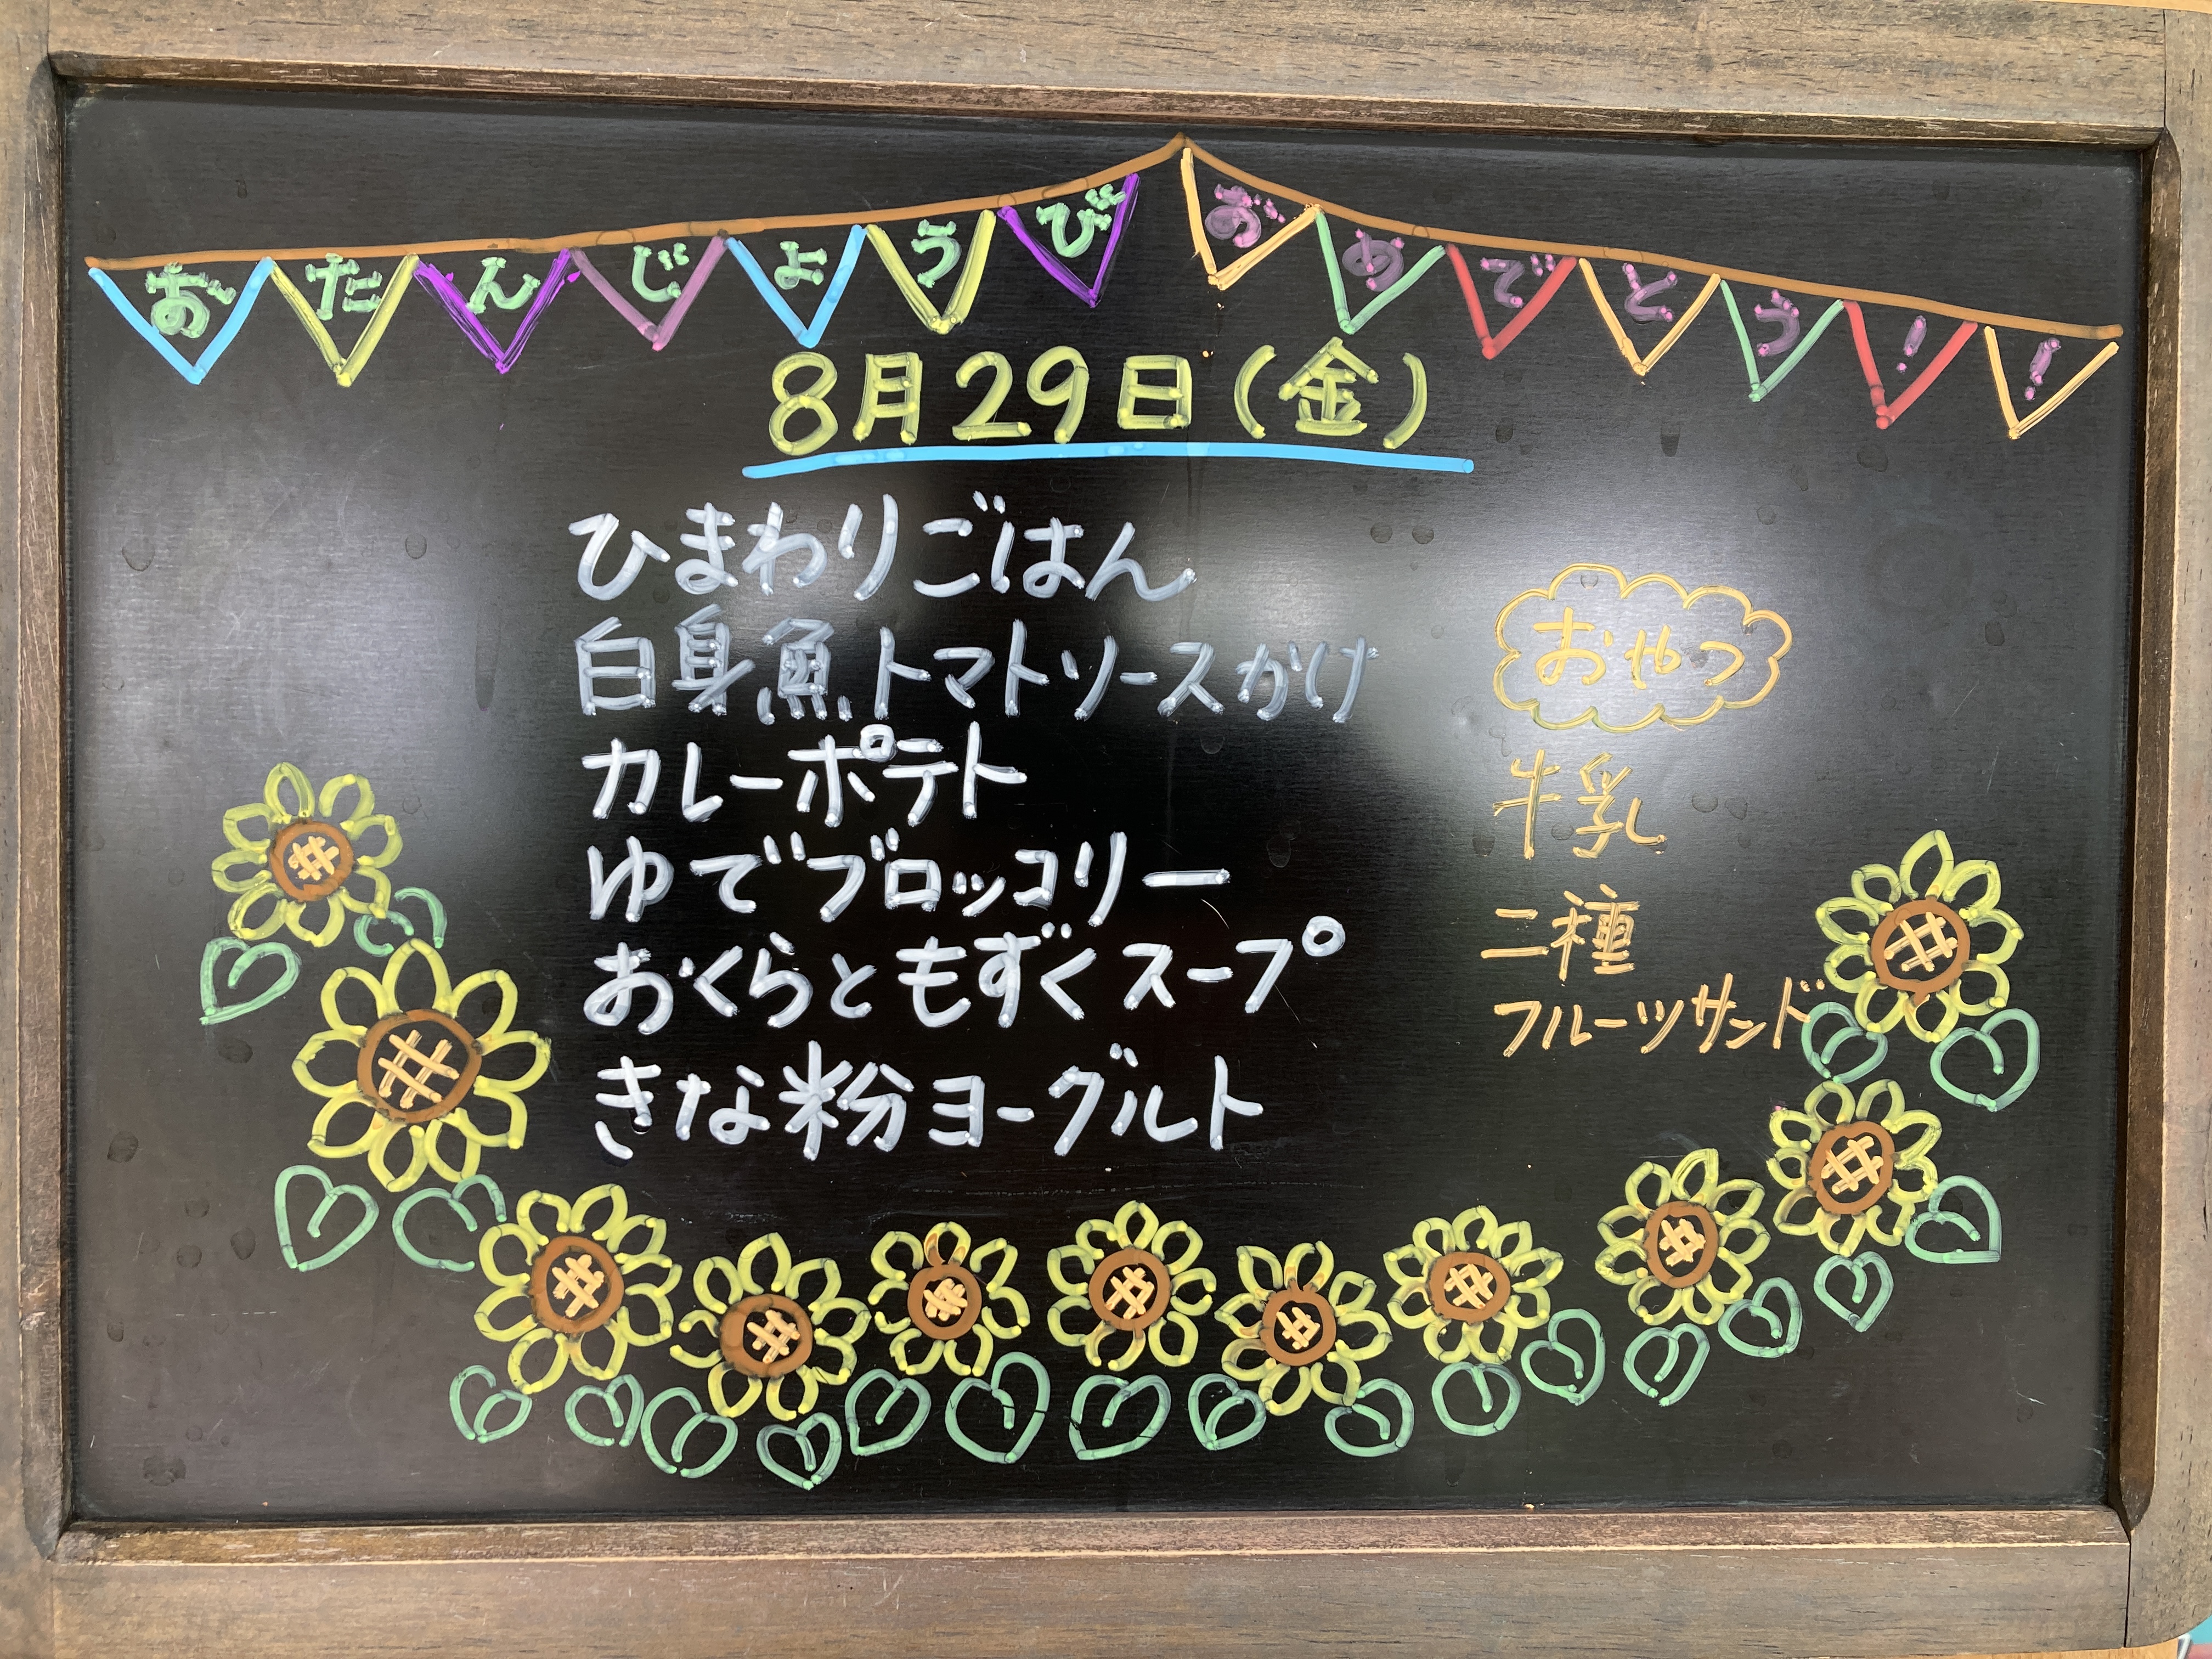 おたんじょうび おめでとう!!
8月29日(金)
ひまわりごはん
白身魚トマトソースかけ
カレーポテト
ゆでブロッコリー
おくらともずくスープ
きな粉ヨーグルト
おやつ
牛乳
二種
フルーツサンド